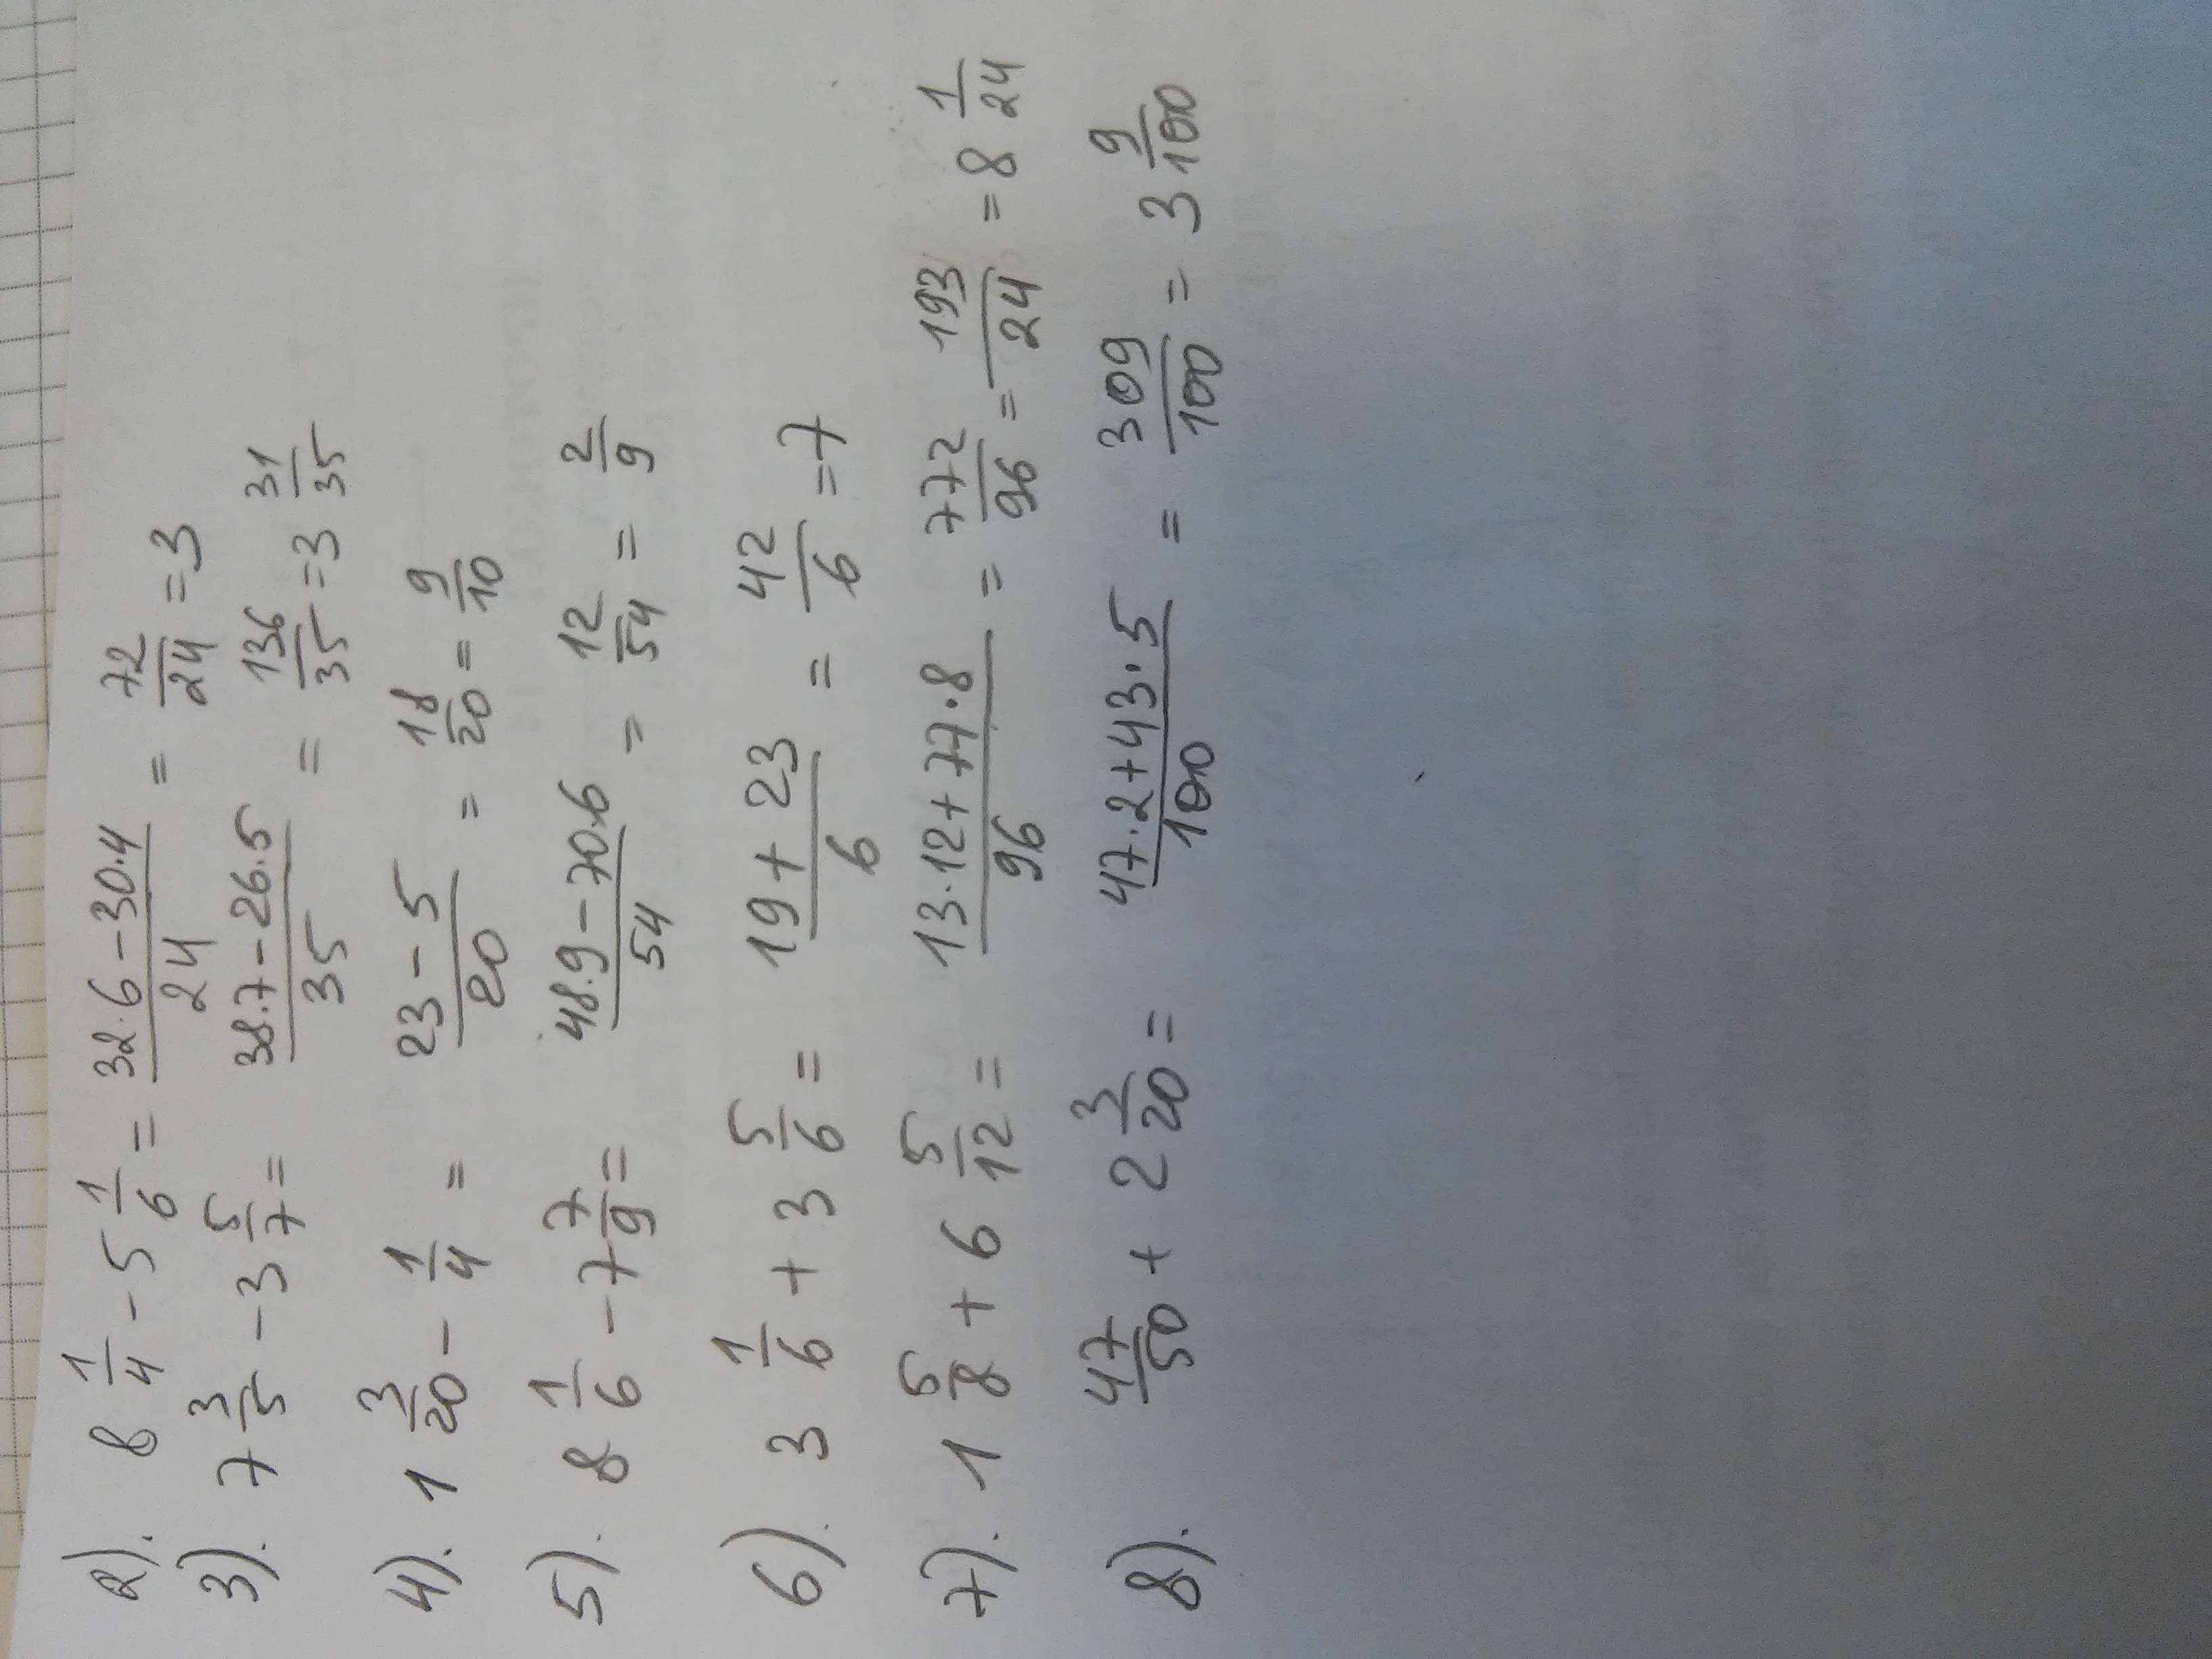 2). 8 1/4 - 5 1/6 = (32·6-30·4)/24 = 72/24 = 3
3). 7 3/5 - 3 5/7 = (38·7-26·5)/35 = 136/35 = 3 31/35
4). 1 3/20 - 1/4 = (23-5)/20 = 18/20 = 9/10
5). 8 1/6 - 7 7/9 = (48·9-70·6)/54 = 12/54 = 2/9
6). 3 1/6 + 3 5/6 = (19+23)/6 = 42/6 = 7
7). 1 5/8 + 6 5/12 = (13·12+77·8)/96 = 772/96 = 193/24 = 8 1/24
8). 47/50 + 2 3/20 = (47·2+43·5)/100 = 309/100 = 3 9/100